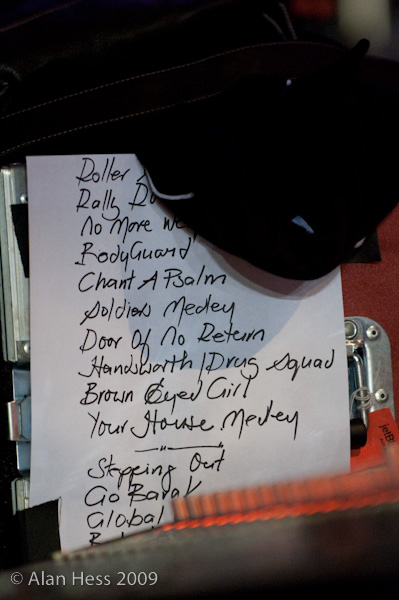 Roller
Rally Ro
No More We
BodyGuard
Chant A Psalm
Soldiers Medley
Door Of No Return
Handsworth/Drug Squad
Brown Eyed Girl
Your House Medley
Stepping Out
Go Barak
Global
jetB
© Alan Hess 2009